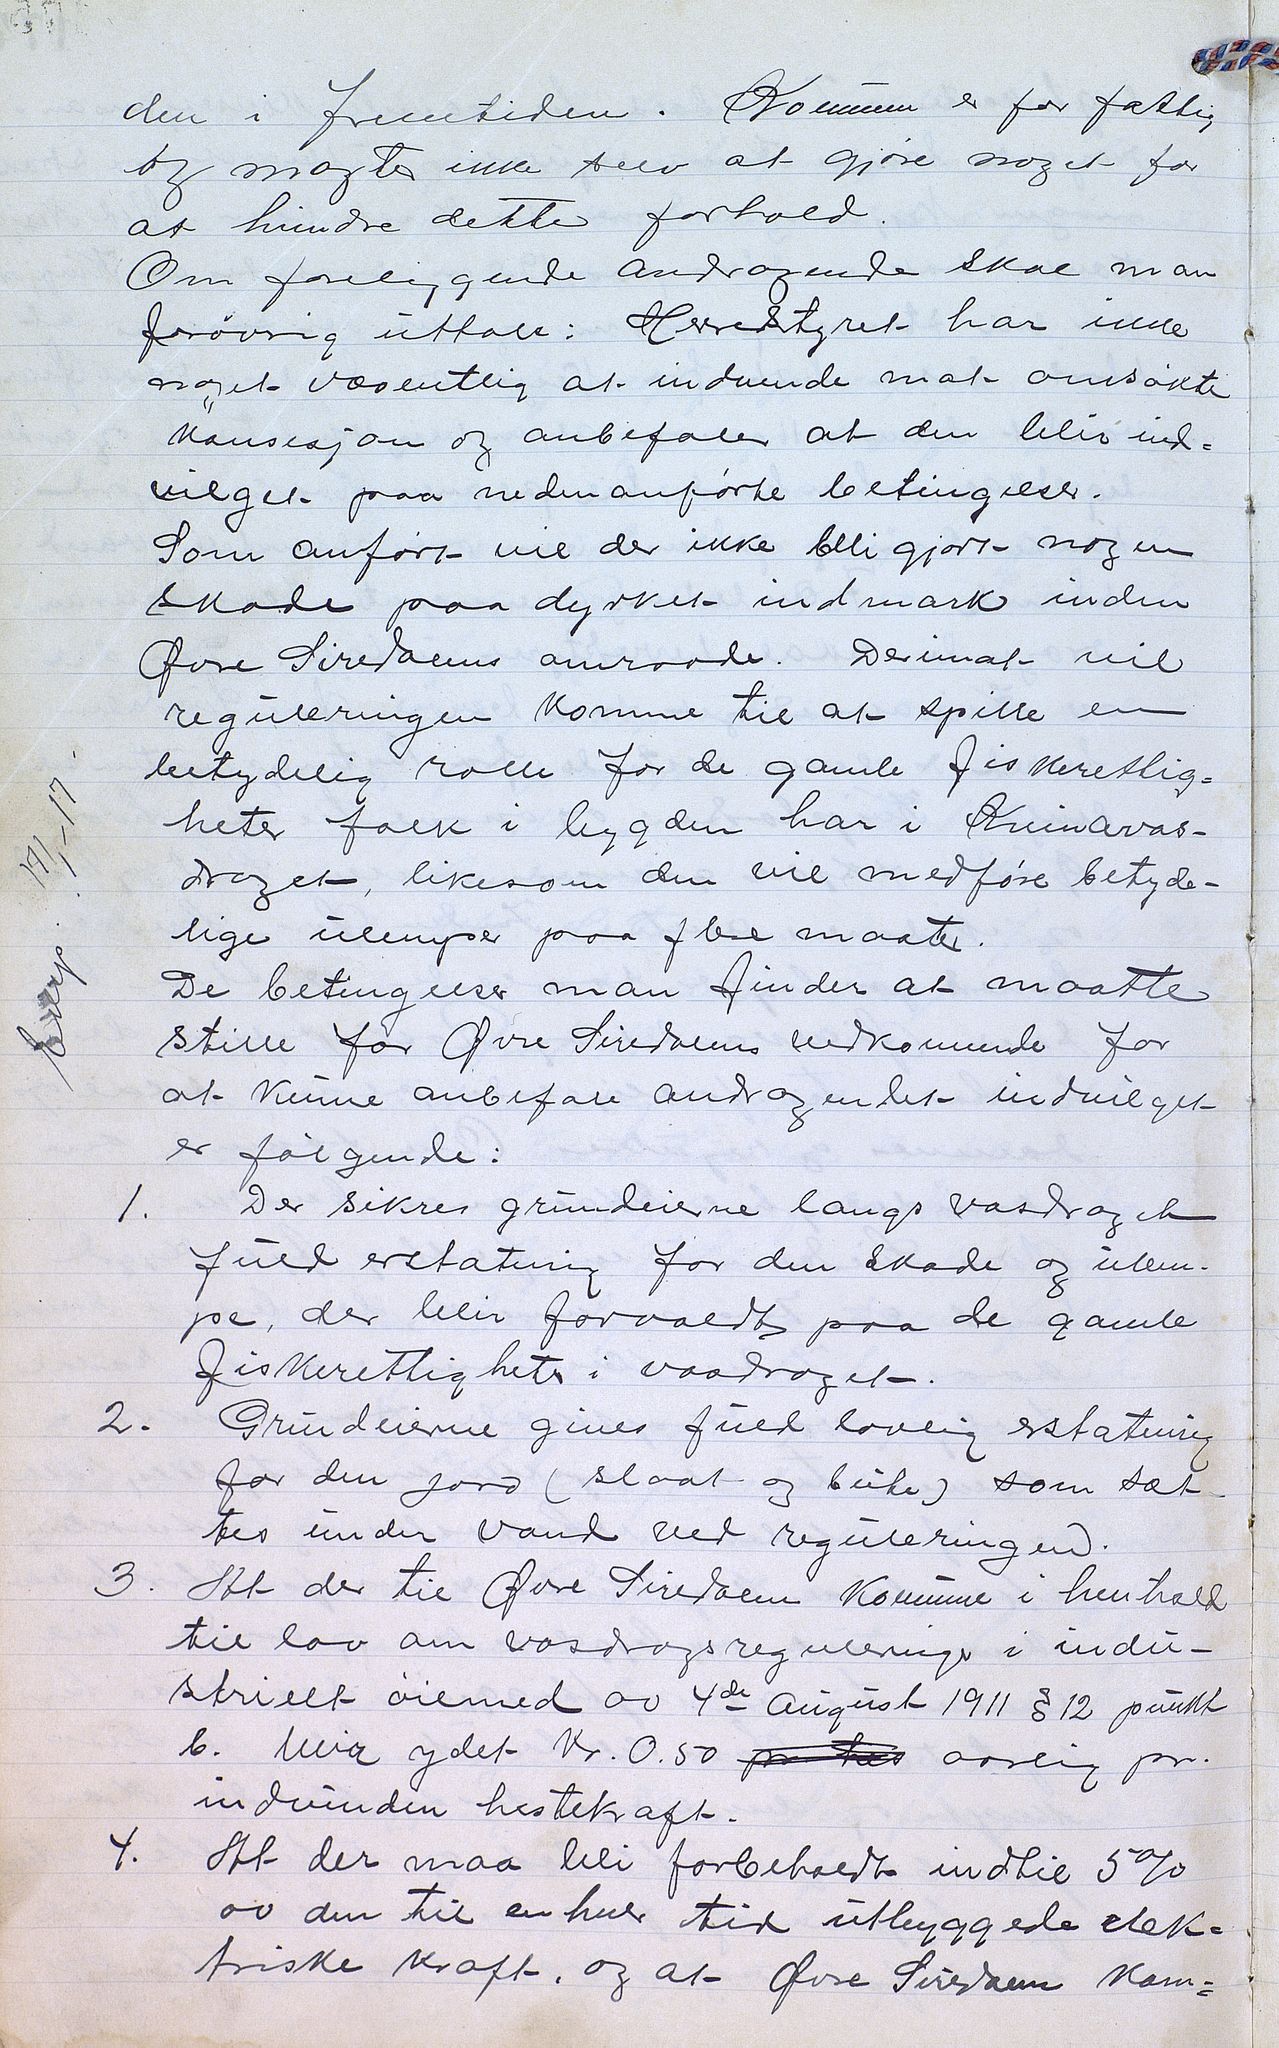 den i fremtiden. Kommunen er for fattig
og magter ikke selv at gjøre noget for
at hindre dette forhold.
Om foreliggende andragende skal man
forøvrig uttale: Herredstyret har ikke
noget væsentlig at indvende mot omsøkte
konsesjon og anbefaler at den blir ind-
vilget paa nedenanførte betingelser.
Som anført vil der ikke bli gjort nogen
skade paa dyrket indmark inden
Øvre Siredalens omraade. Derimot vil
reguleringen komme til at spille en
betydelig rolle for de gamle fiskerettig-
heter folk i bygden har i Kvinavas-
draget, likesom den vil medføre betyde-
lige ulemper paa flere maater.
De betingelser man finder at maatte
stille for Øvre Siredalens vedkommende for
at kunne anbefale andragendet indvilget
er følgende:
1. Der sikres grundeierne langs vasdraget
fuld erstatning for den skade og ulem-
pe, der blir forvoldt paa de gamle
fiskerettigheter i vasdraget.
2. Grundeierne gives fuld lovlig erstatning
for den jord (slaat og beite) som sæt-
tes under vand ved reguleringen.
3. At der til Øvre Siredalen komune i henhold
til lov om vasdragsregulering i indu-
strielt øiemed av 4de August 1911 § 12 punkt
b. blir ydet Kr. 0.50 aarlig pr.
indvunden hestekraft.
4. At der maa bli forbeholdt indtil 5%
av den til enhver tid utbyggede elek-
triske kraft, og at Øvre Siredalen kom-
17/1-17.